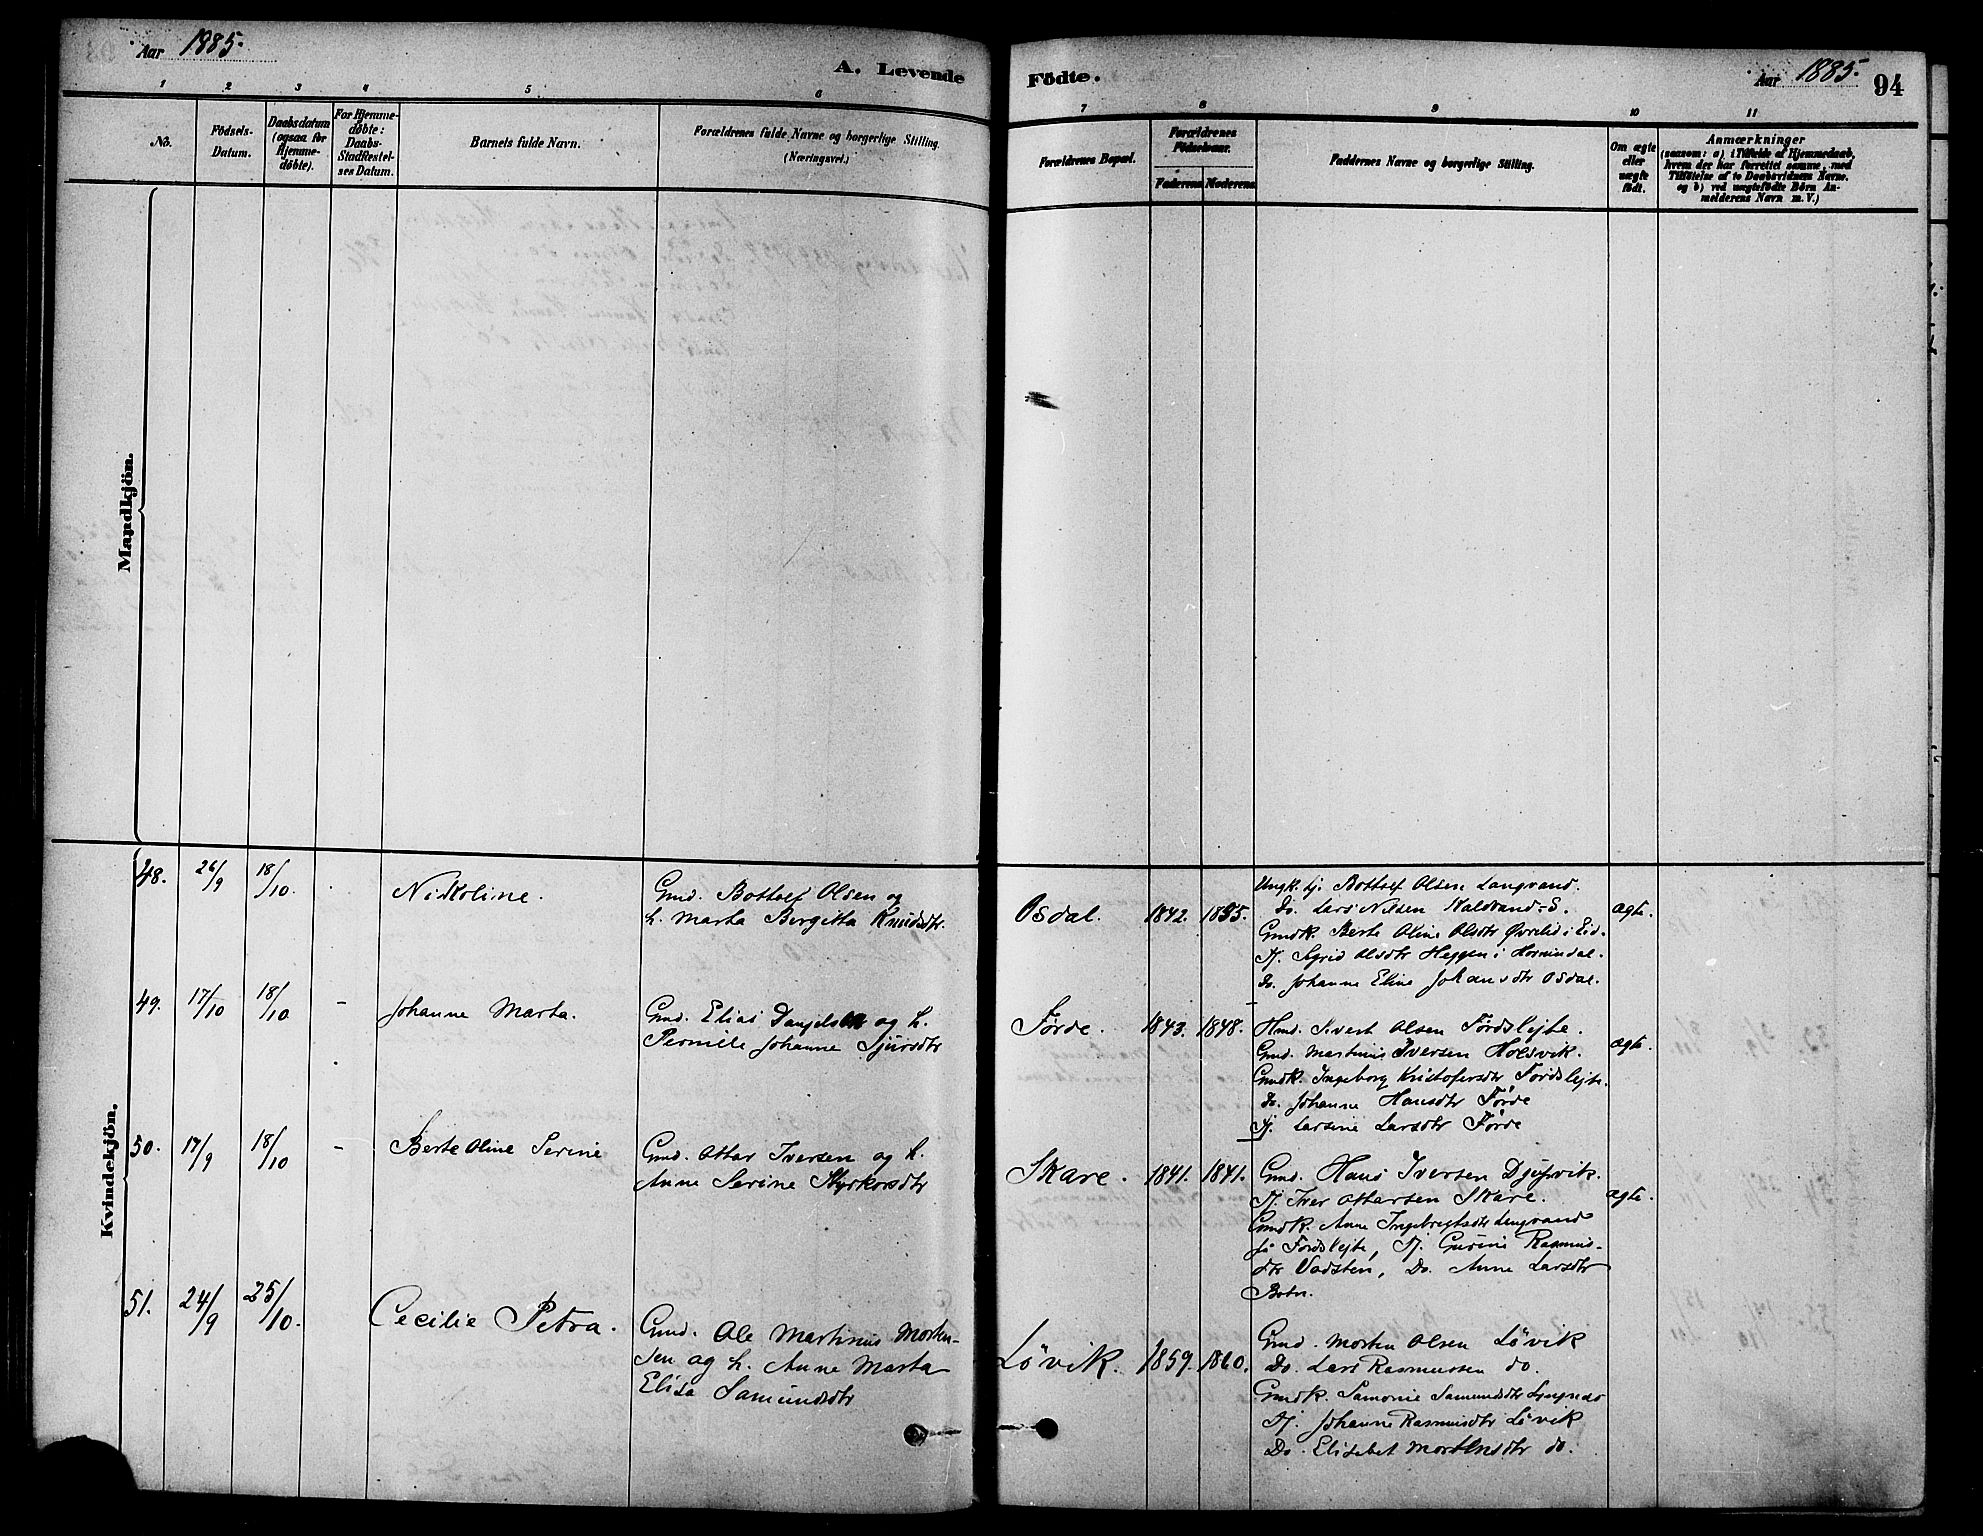 Aar 1885.
A. Levende Födte.
Aar 1885.
94
1 2 3 4 5 6 7 8 9 10 11
No.
Födsels-
Datum.
Daabsdatum
(ogsaa for
Hjemme-
döbte).
For Hjemme-
döbte:
Daabs-
Stadfestel-
ses Datum.
Barnets fulde Navn.
Forældrenes fulde Navne og borgerlige Stilling.
(Næringsvei.)
Forældrenes Bopæl.
Forældrenes
Födselsaar.
Faderens Moderens
Faddernes Navne og borgerlige Stilling.
Om ægte
eller
uægte
födt.
Anmærkninger
(saasom: a) i Tilfælde af Hjemmedaab,
hvem der har forrettet samme, med
Tilföielse af to Daabsvidners Navne.
og b) ved uægtefödte Börn An-
melderens Navn m. V.)
Mandkjön.
Kvindekjön.
48. 26/9 18/10. Nikoline.
Gmd. Bottolf Olsen og
h. Marta Bergitta Knudsdtr.
Osdal. 1842. 1835.
Ungk. tj. Bottolf Olsen Langvand.
Do. Lars Nilsen Kaldvand-S.
Gmdk. Berte Oline Olsdtr Øvrelid i Eid.
Pj. Sigrid Olsdtr Heggen i Hornindal.
Do. Johanne Eline Johansdtr Osdal.
ægte.
49. 17/10 18/10 - Johanne Marta.
Gmd. Elias Danjelsen og h.
Pernille Johanne Sjursdtr
Førde. 1843. 1848.
Hmd. Sivert Olsen Førdslejte.
Gmd. Martinus Iversen Holsvik.
Gmdk. Ingeborg Kristofersdtr Førdslejte.
Do. Johanne Hansdtr Førde
Pj. Larsine Larsdtr Førde
ægte.
50. 17/9 18/10 - Berte Oline Serine
Gmd. Ottar Iversen og h.
Anne Serine Styrkorsdtr
Skare. 1841. 1841.
Gmd. Hans Iversen Djupvik.
Pj. Iver Ottarsen Skare.
Gmdk. Anne Ingebregtsdtr Langvand
på Førdslejte, Pj. Gurine Rasmus-
dtr Vadsten, Do. Anne Larsdtr
Botn.
ægte.
51. 24/9 25/10. Cecilie Petra.
Gmd. Ole Martinus Morten-
sen og h. Anne Marta
Elisa Samundsdtr
Lövik. 1859. 1860.
Gmd. Morten Olsen Lövik
Do. Lars Rasmussen do.
Gmdk. Samonie Samundsdtr Lyngnes
Pj. Johanne Rasmusdtr Lövik
Do. Elisabet Mortensdtr do.